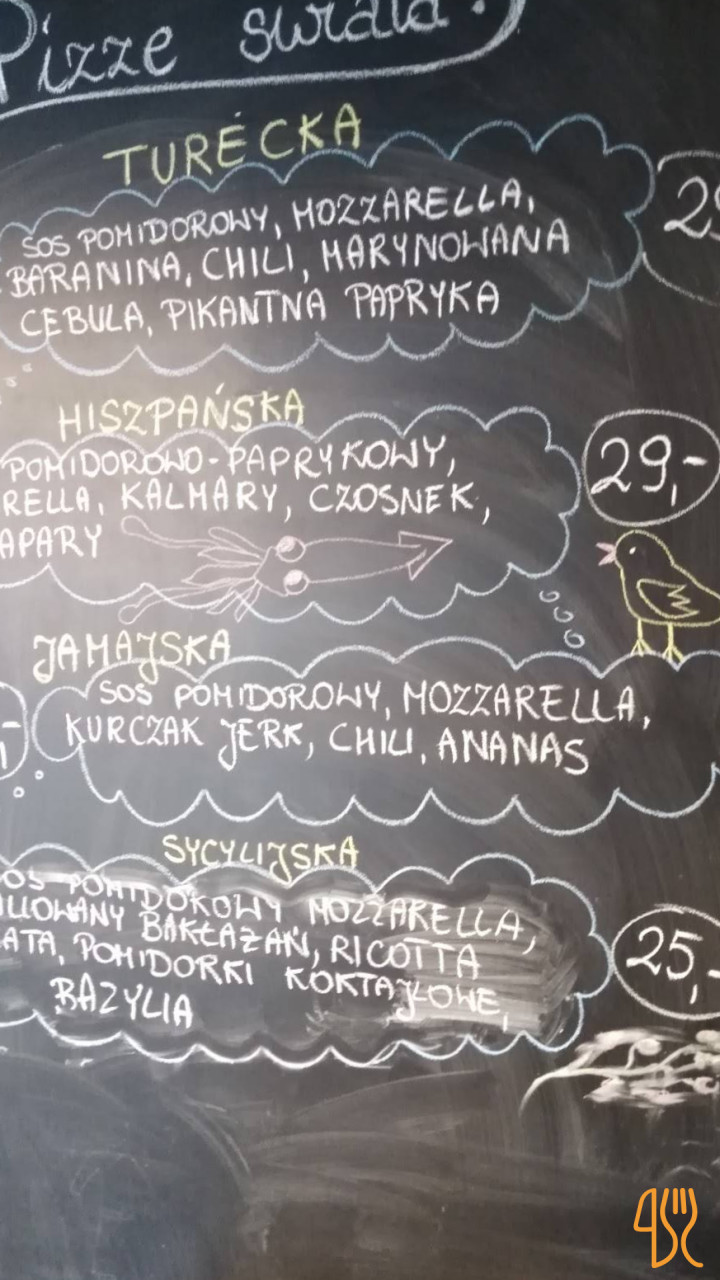 Pizze świata
TURECKA
SOS POMIDOROWY, MOZZARELLA,
BARANINA, CHILI, MARYNOWANA
CEBULA, PIKANTNA PAPRYKA
HISZPAŃSKA
POMIDOROWO-PAPRYKOWY,
RELLA, KALMARY, CZOSNEK,
APARY
29,-
JAMAJSKA
SOS POMIDOROWY, MOZZARELLA,
KURCZAK JERK, CHILI, ANANAS
SYCYLIJSKA
OS POMIDOROWY MOZZARELLA,
LLOWANY BAKŁAŻAN, RICOTTA
ATA, POMIDORKI KOKTAJLOWE,
BAZYLIA
25,-